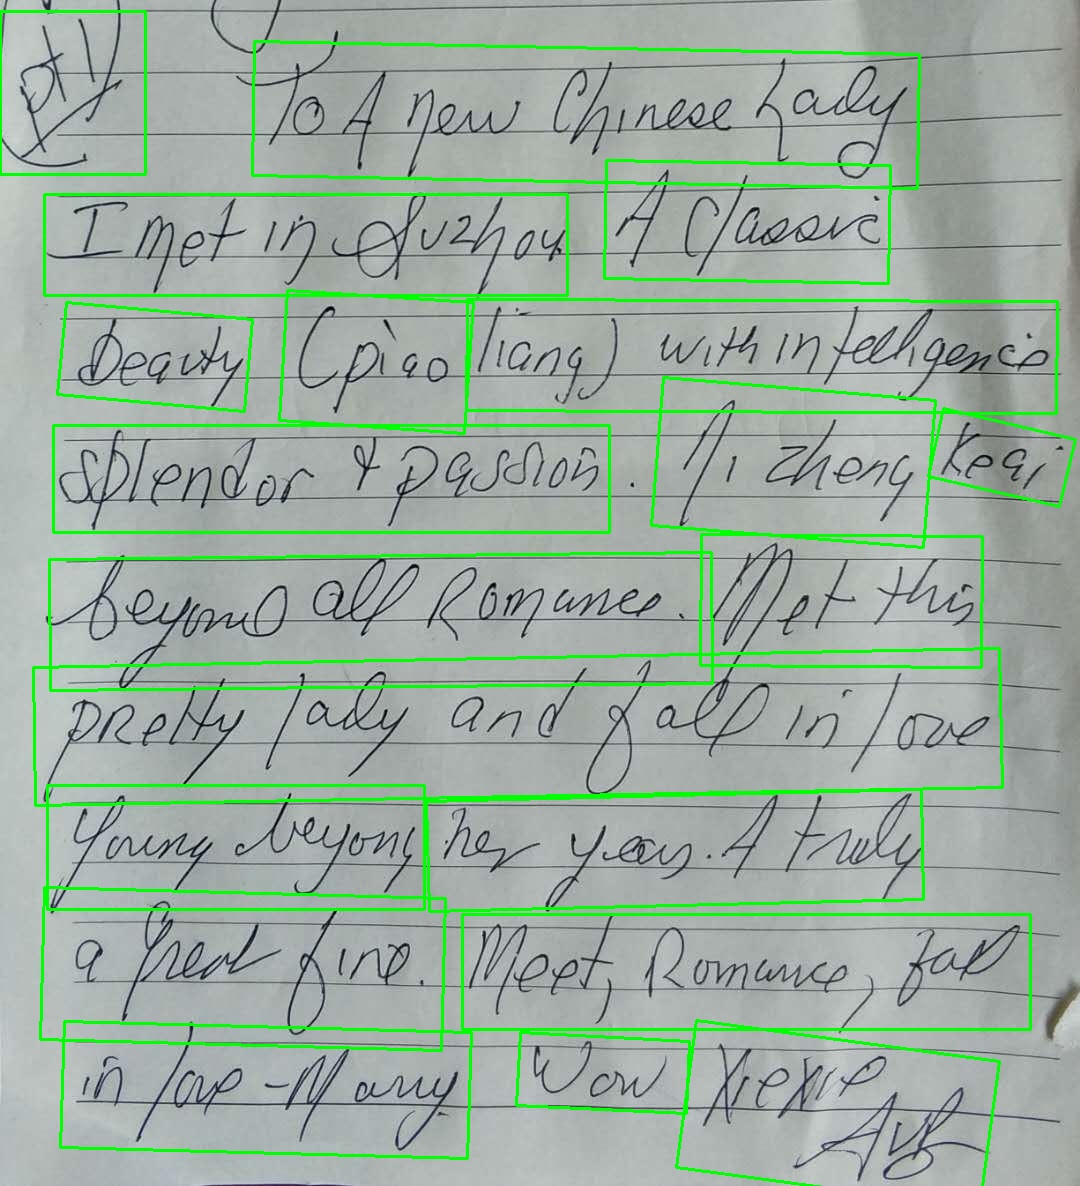 pt 1
To A new Chinese Lady
I met in Suzhou A Classic
beauty (piao liang) with intelligence
splendor & passion. Ni zheng Keai
beyond all Romance. Met this
pretty lady and fall in love
Young beyong her years. A truly
a great fine. Meet, Romance, fall
in love - Marry Wow XieXie